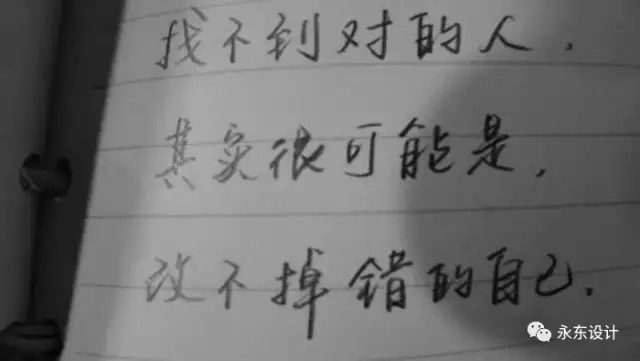 找不到对的人.
其实很可能是,
改不掉错的自己.
永东设计